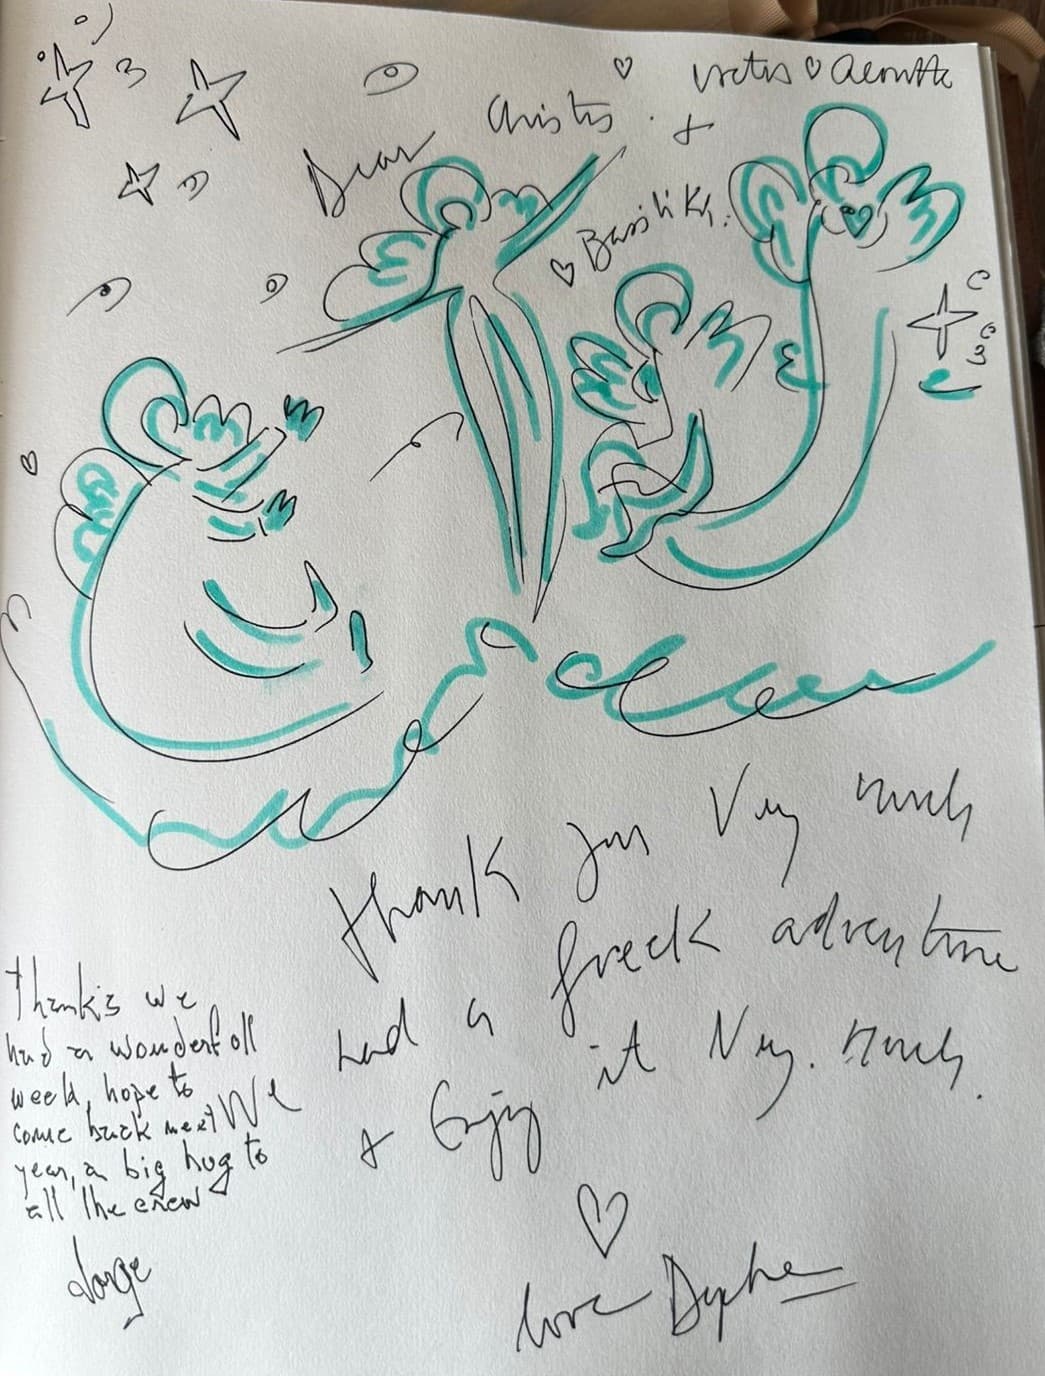 Dear Christos. +
♡ Basiliki.
Thank you Very much
We had a greek adventure
& Enjoy it Very. Much.
♡
love
Thanks we
had a wonderfoll
week, hope to
come back next
year, a big hug to
all the crew
Jorge